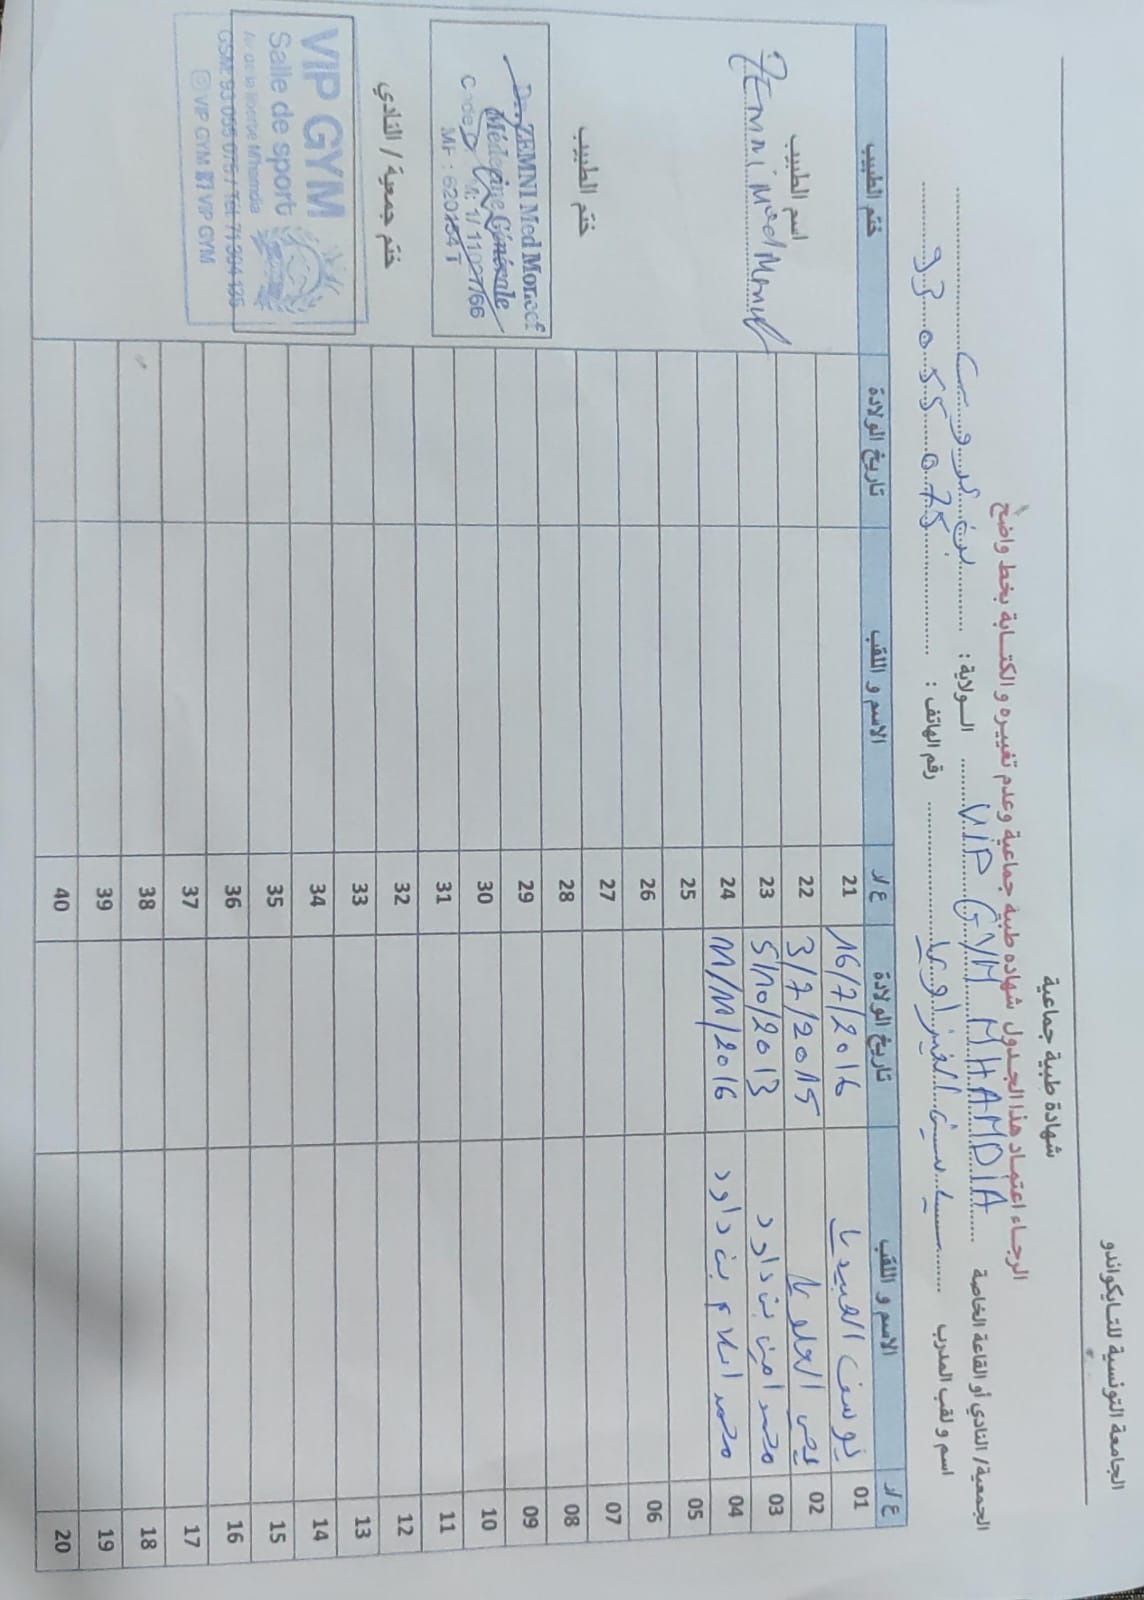 الجامعة التونسية للتايكواندو
شهادة طبية جماعية
الرجاء اعتماد هذا الجدول شهادة طبية جماعية وعدم تغييره و الكتابة بخط واضح
الجمعية/ النادي أو القاعة الخاصة VIP GYM MHAMDIA الولاية : بن عروس
اسم و لقب المدرب رقم الهاتف : 93 055 075
ع/ر الاسم و اللقب تاريخ الولادة ع/ر الاسم و اللقب تاريخ الولادة ختم الطبيب
01 يوسف العبيدي 16/7/2016 21
02 العلوي 3/7/2015 22
03 محمد امين بن داود 5/10/2013 23
04 محمد اسلام بن داود 11/11/2016 24
05 25
06 26
07 27
08 28
09 29
10 30
11 31
12 32
13 33
14 34
15 35
16 36
17 37
18 38
19 39
20 40
اسم الطبيب
Zemni Med Moncef
ختم الطبيب
Dr. ZEMNI Med Moncef
Médecine Générale
ختم جمعية / النادي
VIP GYM
Salle de sport
Av de la liberté Mhamdia
GSM: 93 055 075 / Tél 71 304 125
VIP GYM VIP GYM